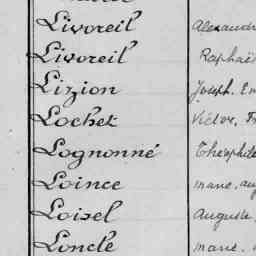 Livoreil Alexandr
Livoreil Raphaë
Lizion Joseph. Em
Lochet Victor. Fr
Lognonné Théophile
Loince marie. aug
Loisel Auguste
Loncle marie.